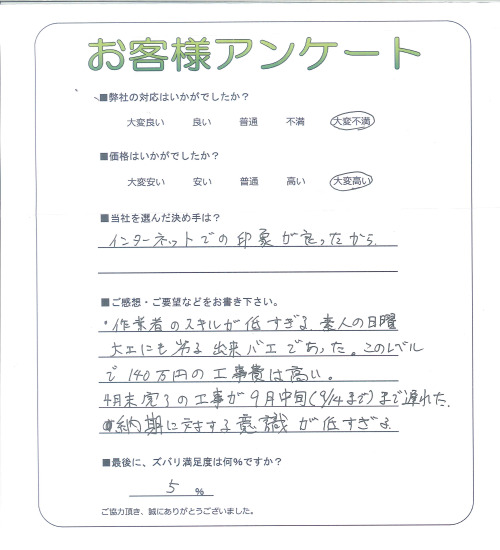 お客様アンケート
■弊社の対応はいかがでしたか？
大変良い 良い 普通 不満 大変不満
■価格はいかがでしたか？
大変安い 安い 普通 高い 大変高い
■当社を選んだ決め手は？
インターネットでの印象が良ったから
■ご感想・ご要望などをお書き下さい。
・作業者のスキルが低すぎる。素人の日曜
大工にも劣る出来バエであった。このレベル
で140万円の工事費は高い。
4月末完了の工事が9月中旬(9/14まで)まで遅れた。
納期に対する意識が低すぎる
■最後に、ズバリ満足度は何%ですか？
5 %
ご協力頂き、誠にありがとうございました。